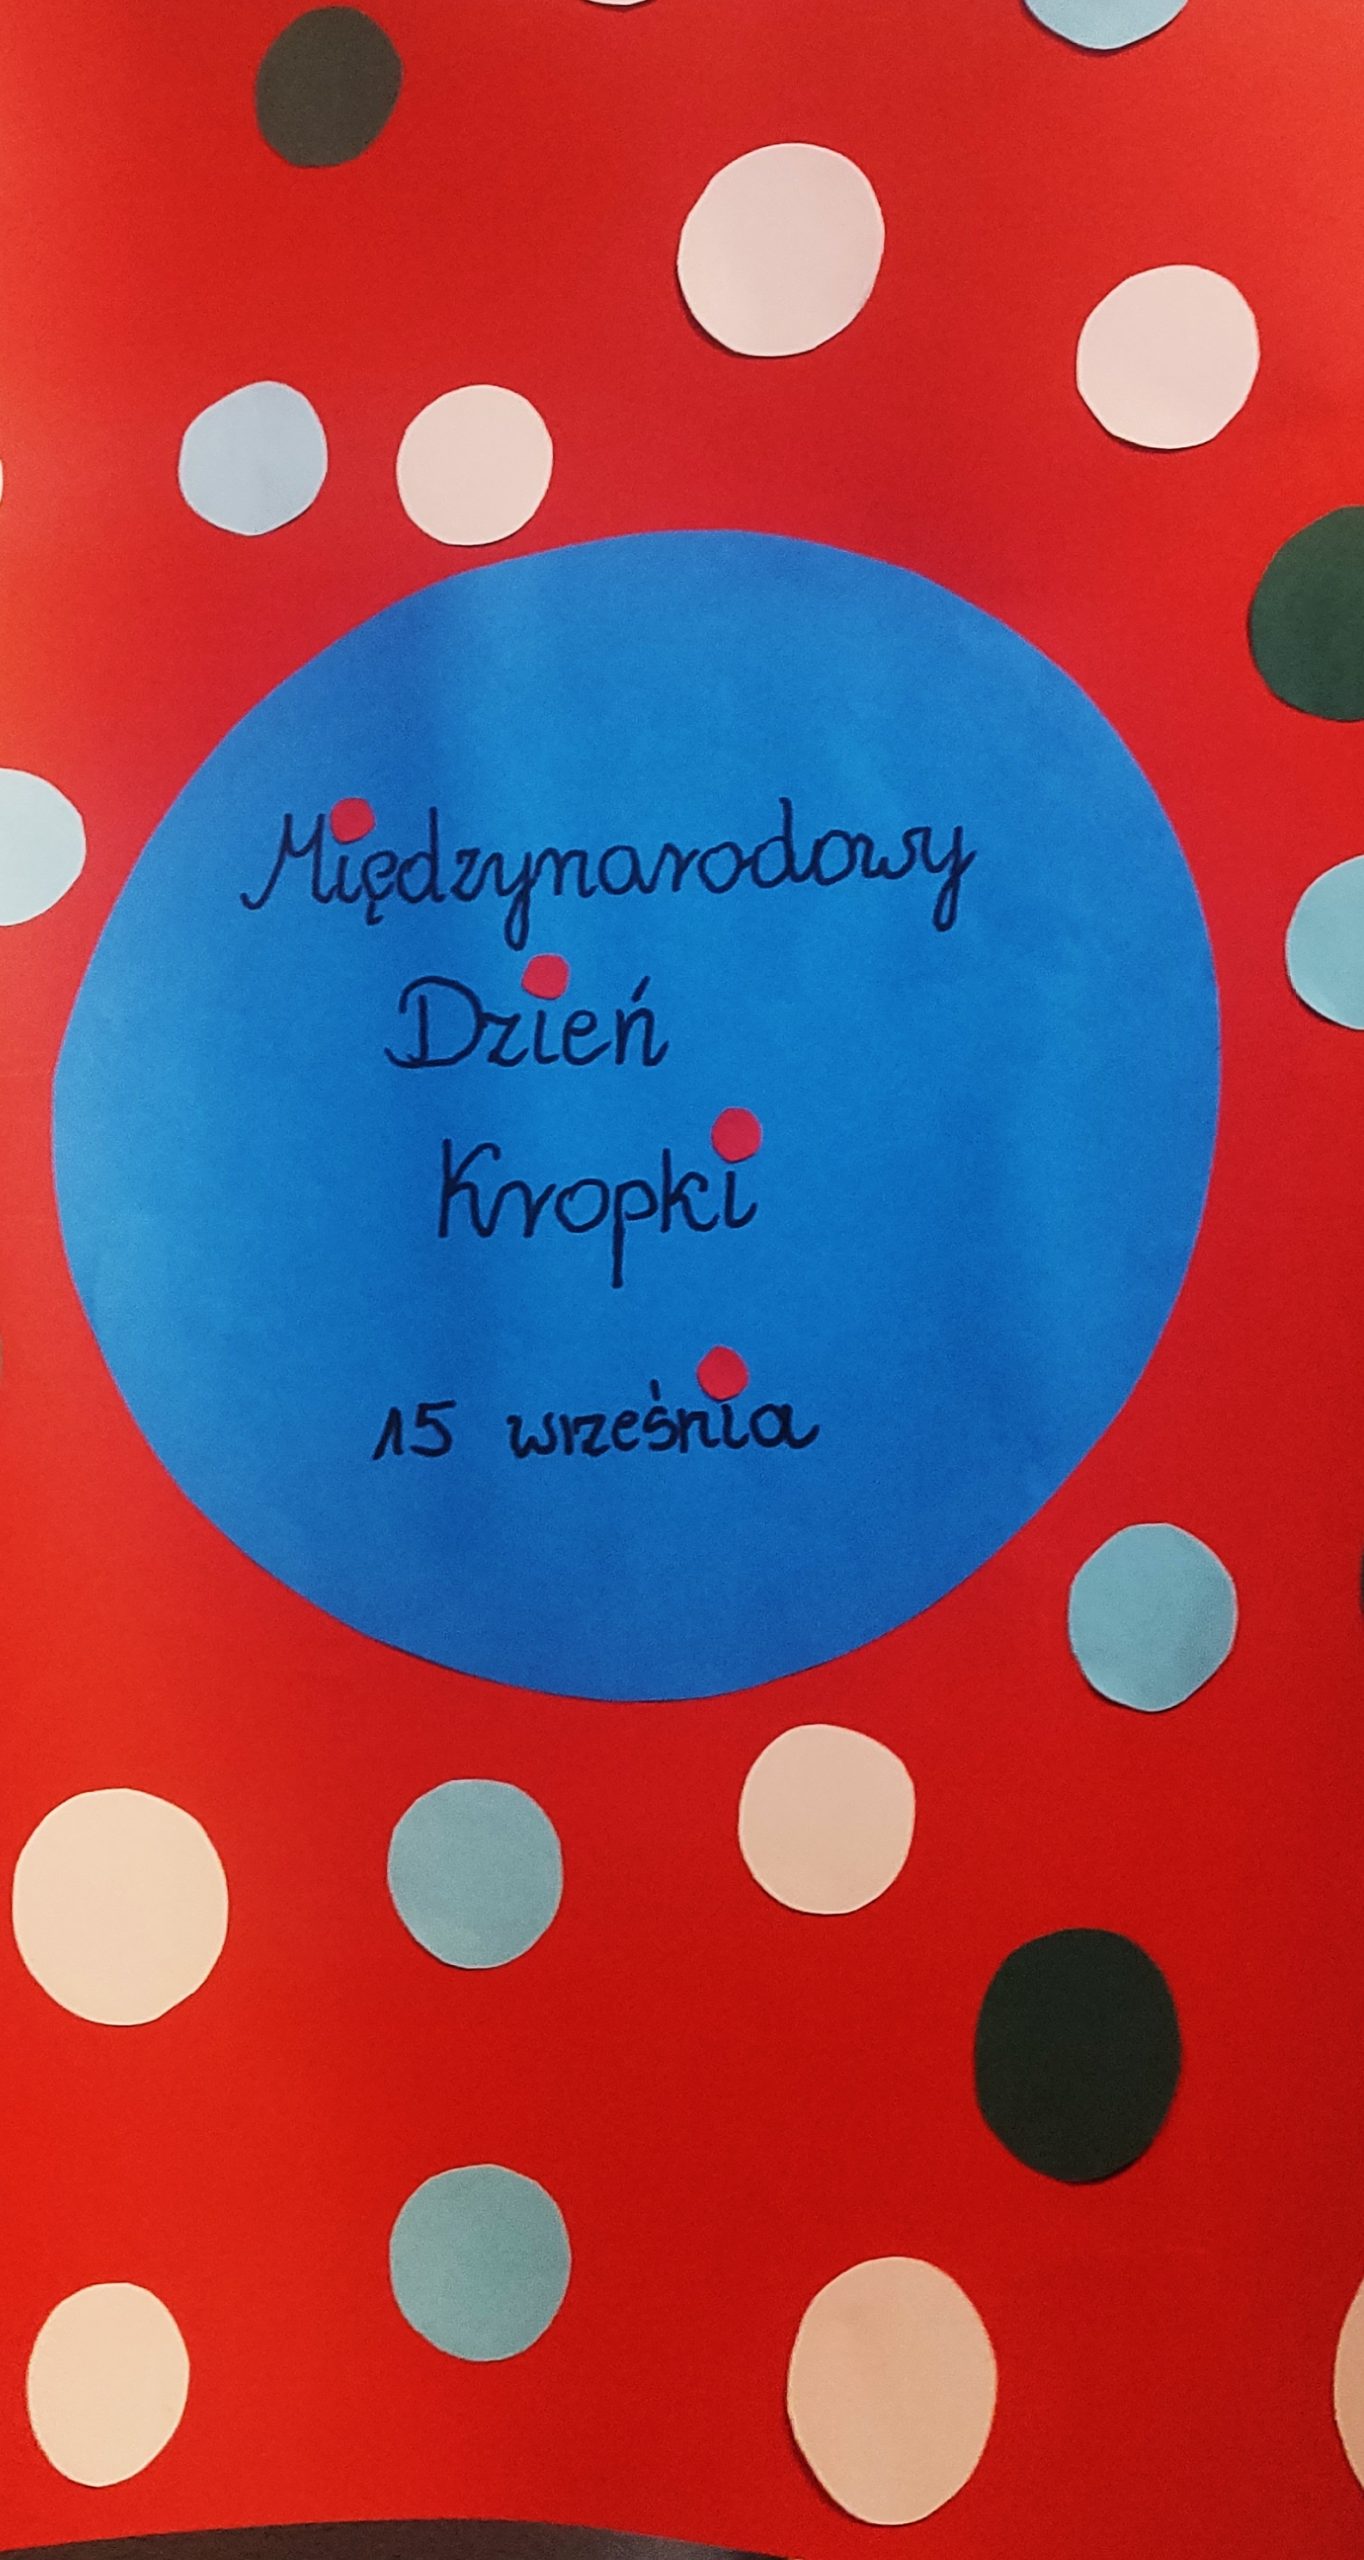 Międzynarodowy
Dzień
Kropki
15 września